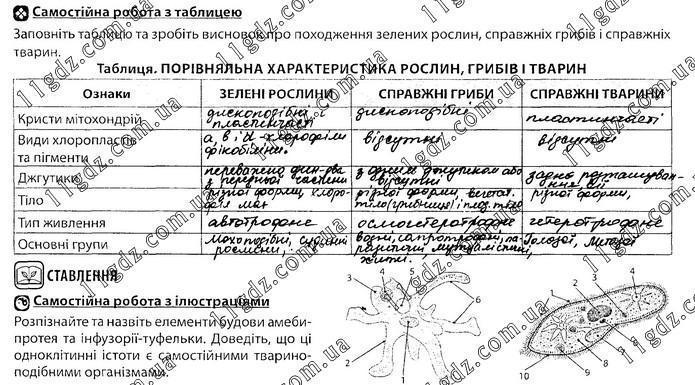 Самостійна робота з таблицею
Заповніть таблицю та зробіть висновок про походження зелених рослин, справжніх грибів і справжніх
тварин.
Таблиця. ПОРІВНЯЛЬНА ХАРАКТЕРИСТИКА РОСЛИН, ГРИБІВ І ТВАРИН
Ознаки ЗЕЛЕНІ РОСЛИНИ СПРАВЖНІ ГРИБИ СПРАВЖНІ ТВАРИНИ
Кристи мітохондрій дископодібні і пластинчасті дископодібні пластинчасті
Види хлоропластів та пігменти а, в і д - хлорофіли фікобіліни. відсутні відсутні
Джгутики переважно з передньої частини з одним або відсутні заднє
Тіло різної форми, різної форми, різної форми,
Тип живлення автотрофне осмогетеротрофне гетеротрофне
Основні групи Мохоподібні, судинні рослини. водні, сапротрофні,
СТАВЛЕННЯ
Самостійна робота з ілюстраціями
Розпізнайте та назвіть елементи будови амеби-
протея та інфузорії-туфельки. Доведіть, що ці
одноклітинні істоти є самостійними тварино-
подібними організмами.
3 4 5 6 2 1
1 2 3 4 5 6 7 8 9 10
11gdz.com.ua